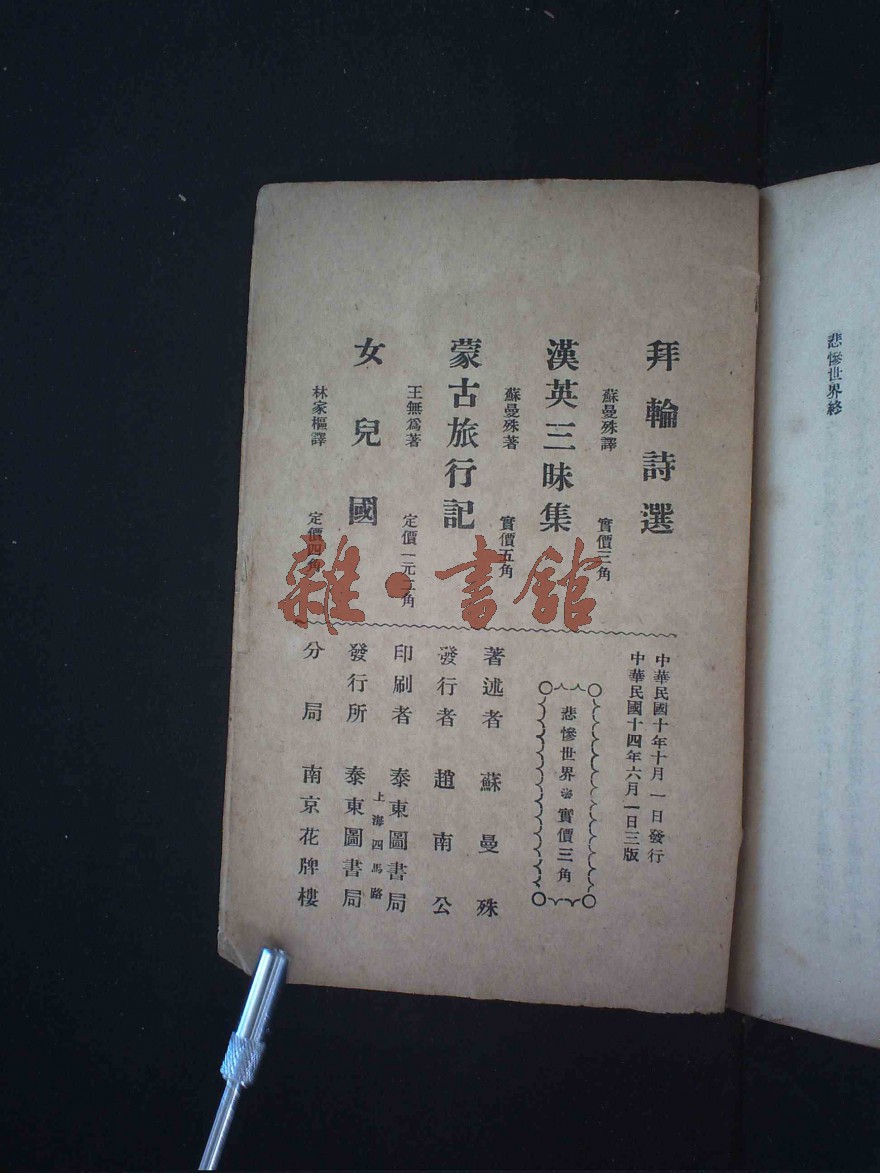 悲慘世界終
拜輪詩選
蘇曼殊譯
實價三角
漢英三昧集
蘇曼殊著
實價五角
蒙古旅行記
王無爲著
定價一元二角
女兒國
林家樞譯
定價四角
雜·書館
中華民國十年十月一日發行
中華民國十四年六月一日三版
悲慘世界 實價三角
著述者 蘇曼殊
發行者 趙南公
印刷者 泰東圖書局
上海四馬路
發行所 泰東圖書局
分局 南京花牌樓